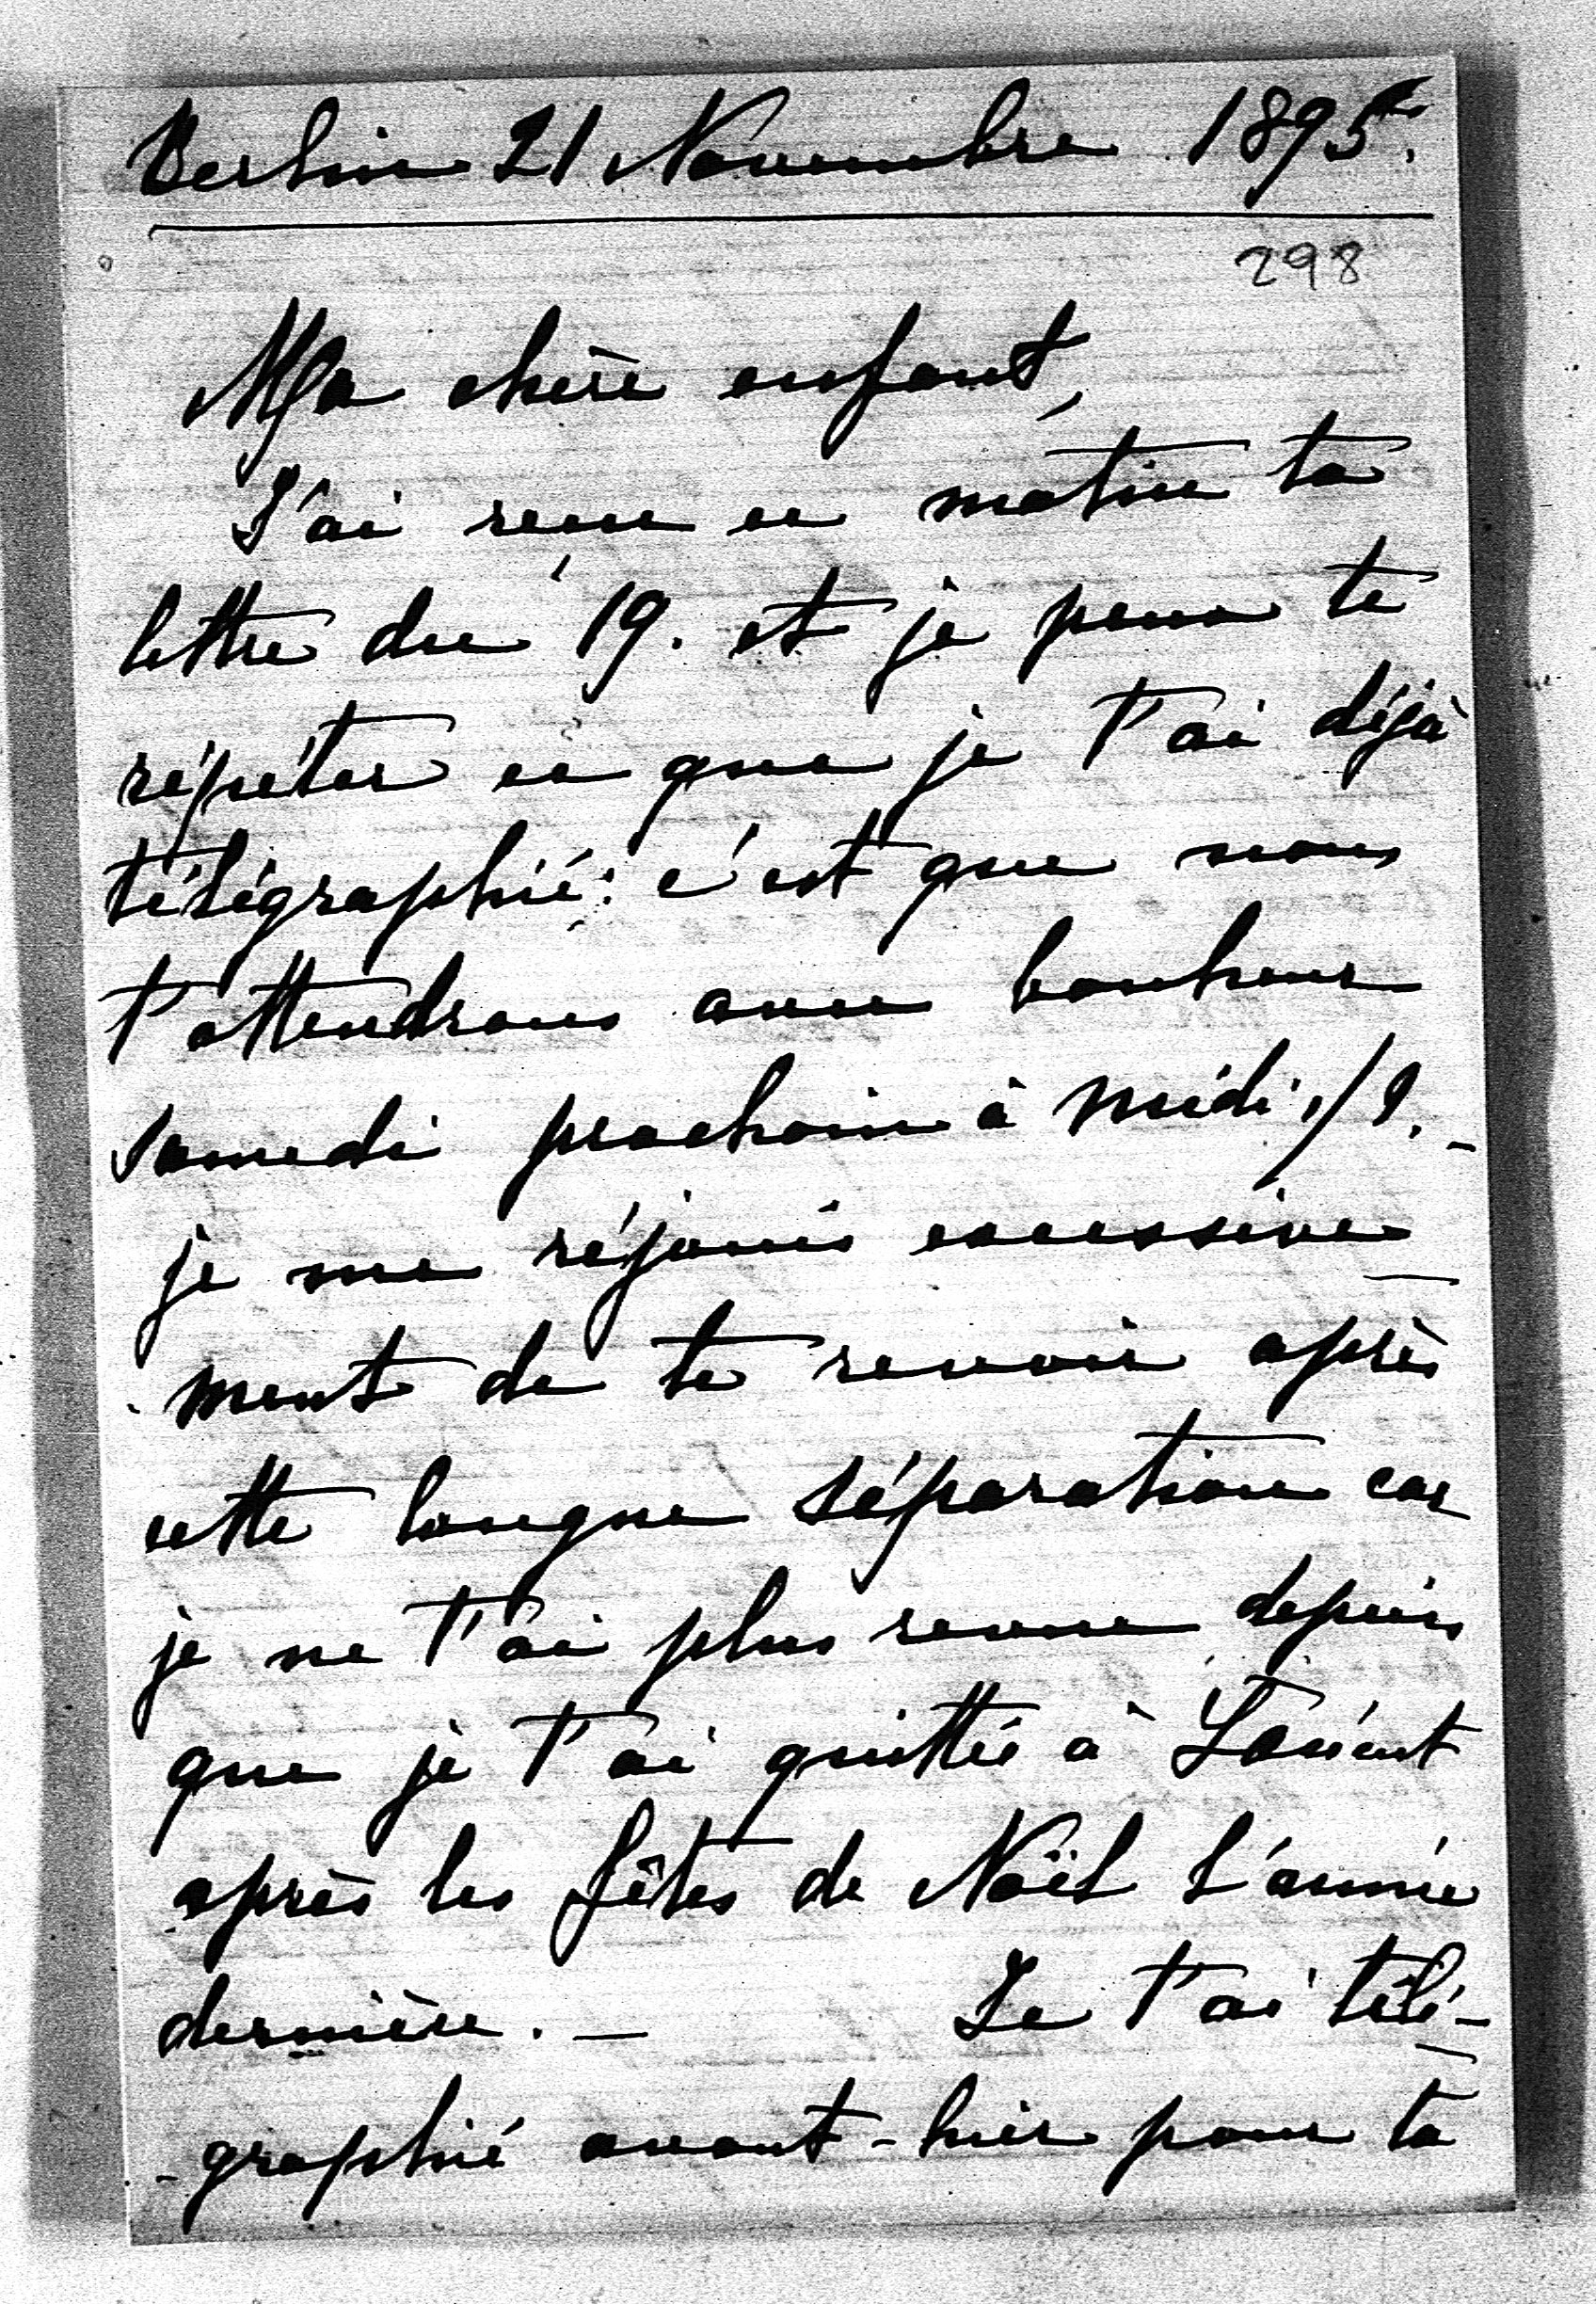 Berlin 21 Novembre 1895.
298
Ma chère enfant,
J'ai reçu ce matin ta
lettre du 19. et je peux te
répéter ce que je t'ai déjà
télégraphié: c'est que nous
t'attendrons avec bonheur
samedi prochain à midi 1/2. _
je me réjouis excessive_
ment de te revoir après
cette longue séparation car
je ne t'ai plus revue depuis
que je t'ai quittée à
après les fêtes de Noël l'année
dernière. _ Je t'ai télé_
_graphié avant-hier pour ta